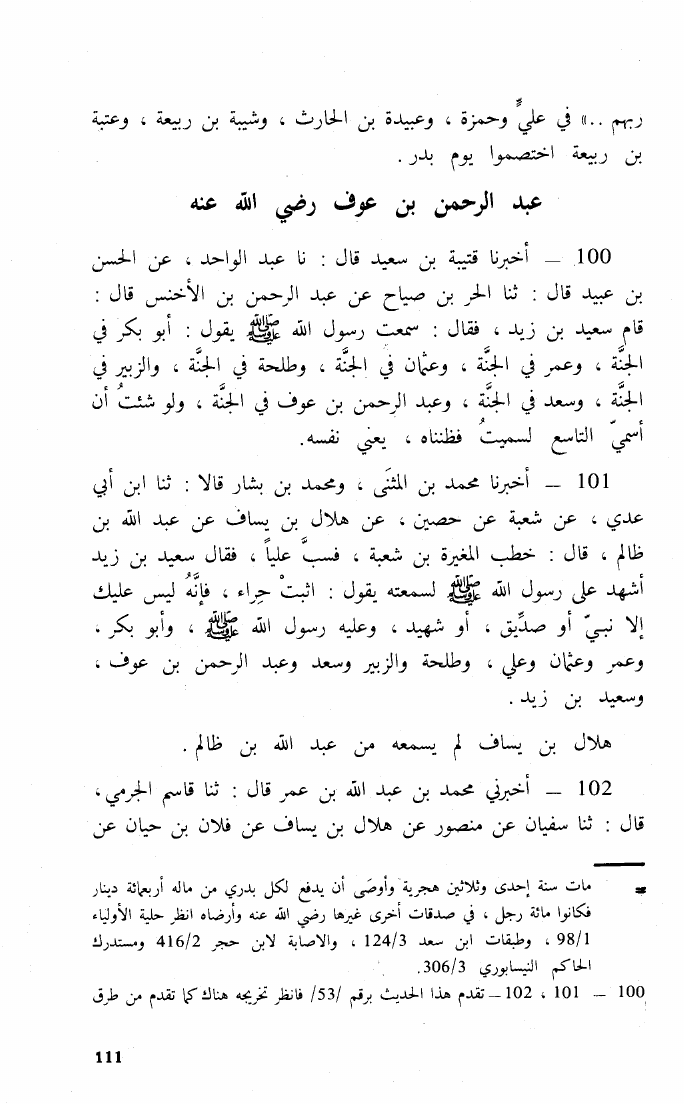 ربهم ..» في عليٍّ وحمزة ، وعبيدة بن الحارث ، وشيبة بن ربيعة ، وعتبة
بن ربيعة اختصموا يوم بدر .
عبد الرحمن بن عوف رضي الله عنه
100 — أخبرنا قتيبة بن سعيد قال : نا عبد الواحد ، عن الحسن
بن عبيد قال : ثنا الحر بن صياح عن عبد الرحمن بن الأخنس قال :
قام سعيد بن زيد ، فقال : سمعت رسول الله ﷺ يقول : أبو بكر في
الجنَّة ، وعمر في الجنَّة ، وعثمان في الجنَّة ، وطلحة في الجنَّة ، والزبير في
الجنَّة ، وسعد في الجنَّة ، وعبد الرحمن بن عوف في الجنَّة ، ولو شئتُ أن
أسميّ التاسع لسميتُ فظنناه ، يعني نفسه.
101 — أخبرنا محمد بن المثنَى ، ومحمد بن بشار قالا : ثنا ابن أبي
عدي ، عن شعبة عن حصين ، عن هلال بن يساف عن عبد الله بن
ظالم ، قال : خطب المغيرة بن شعبة ، فسبَّ علياً ، فقال سعيد بن زيد
أشهد على رسول الله ﷺ لسمعته يقول : اثبتْ حِراء ، فإنَّهُ ليس عليك
إلا نبيّ أو صدِّيق ، أو شهيد ، وعليه رسول الله ﷺ ، وأبو بكر ،
وعمر وعثمان وعلي ، وطلحة والزبير وسعد وعبد الرحمن بن عوف ،
وسعيد بن زيد .
هلال بن يساف لم يسمعه من عبد الله بن ظالم .
102 — أخبرني محمد بن عبد الله بن عمر قال : ثنا قاسم الجرمي ،
قال : ثنا سفيان عن منصور عن هلال بن يساف عن فلان بن حيان عن
* مات سنة إحدى وثلاثين هجرية وأوصَى أن يدفع لكل بدري من ماله أربعمائة دينار
فكانوا مائة رجل ، في صدقات أخرى غيرها رضي الله عنه وأرضاه انظر حلية الأولياء
98/1 ، وطبقات ابن سعد 124/3 ، والاصابة لابن حجر 416/2 ومستدرك
الحاكم النيسابوري 306/3.
100 — 101 ، 102 — تقدم هذا الحديث برقم /53/ فانظر تخريجه هناك كما تقدم من طرق
111